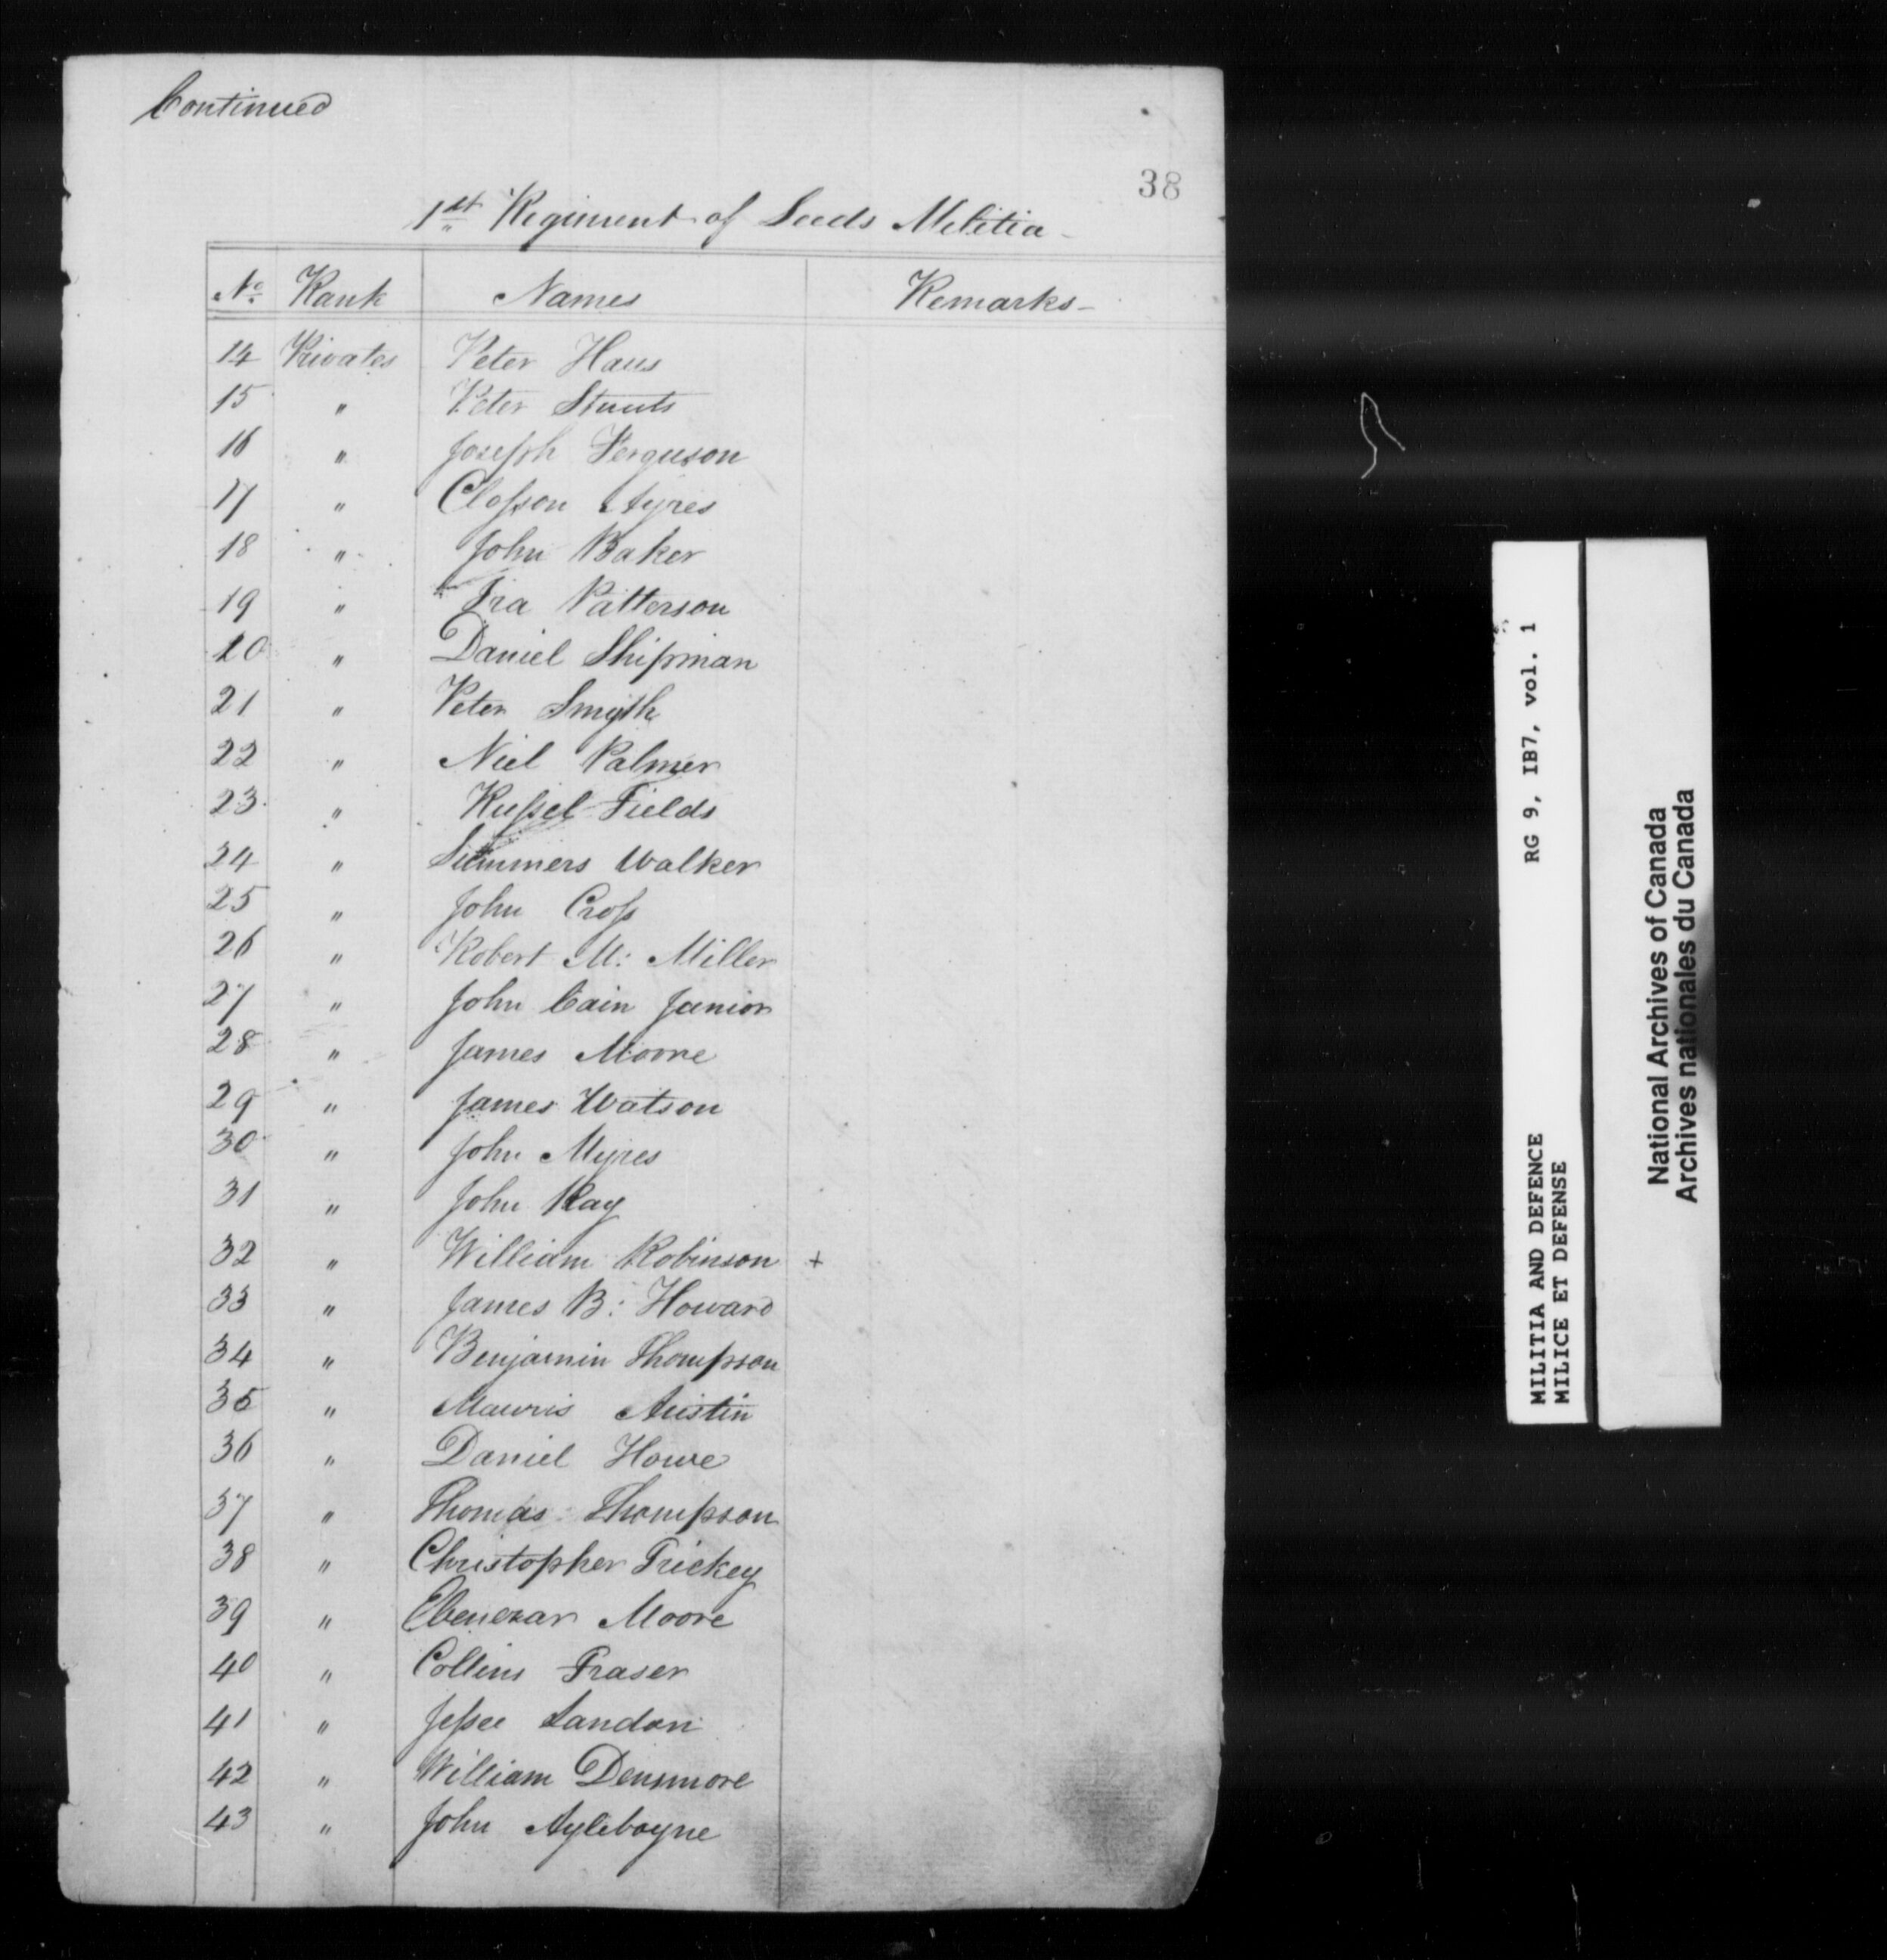 Continued
38
1st Regiment of Leeds Militia
No Rank Names Remarks
14 Privates Peter Haus
15 " Peter Stuuts
16 " Joseph Ferguson
17 " Closson Ayres
18 " John Baker
19 " Ira Patterson
20 " Daniel Shipman
21 " Peter Smyth
22 " Niel Palmer
23 " Russel Fields
24 " Summers Walker
25 " John Cross
26 " Robert M: Miller
27 " John Cain Junior
28 " James Moore
29 " James Watson
30 " John Myres
31 " John Ray
32 " William Robinson +
33 " James B: Howard
34 " Benjamin Thompson
35 " Mauris Austin
36 " Daniel Howe
37 " Thomas Thompson
38 " Christopher Trickey
39 " Ebenezar Moore
40 " Collins Fraser
41 " Jessee Landon
42 " William Densmore
43 " John Ayleboyne
MILITIA AND DEFENCE RG 9, IB7, vol. 1
MILICE ET DEFENSE
National Archives of Canada
Archives nationales du Canada